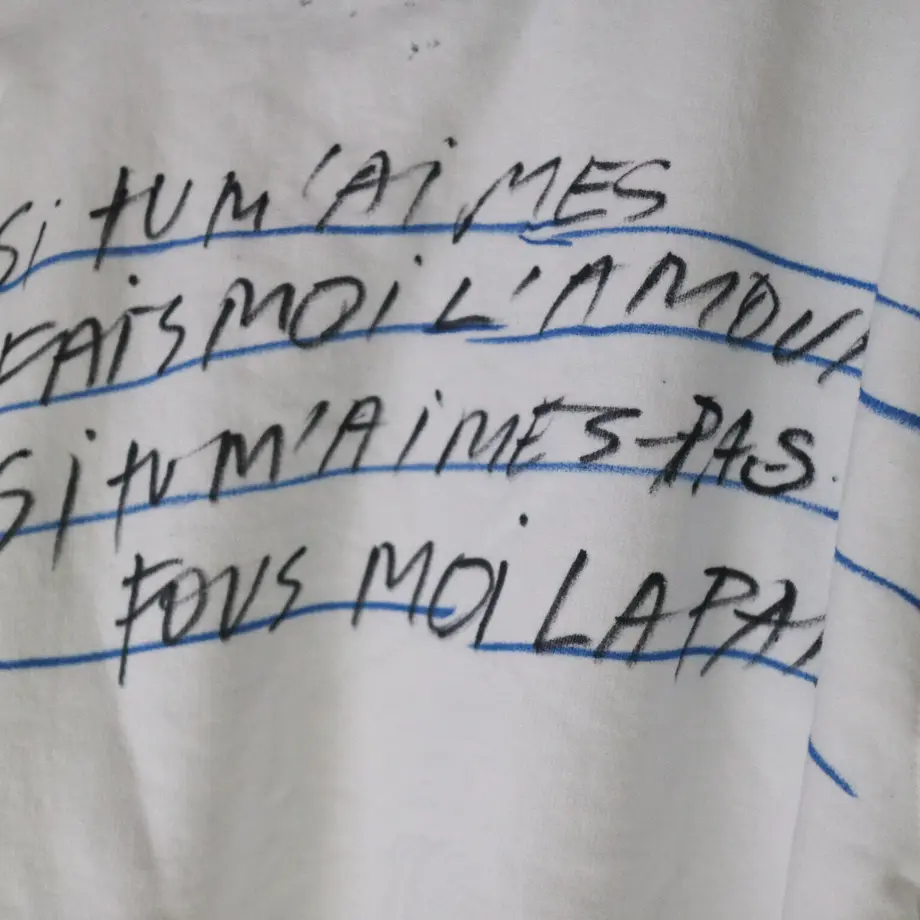 Si tU M'AiMES
FAiS MOi L'AMOU
Si tU M'AiMES-PAS
FOUS MOi LA PA